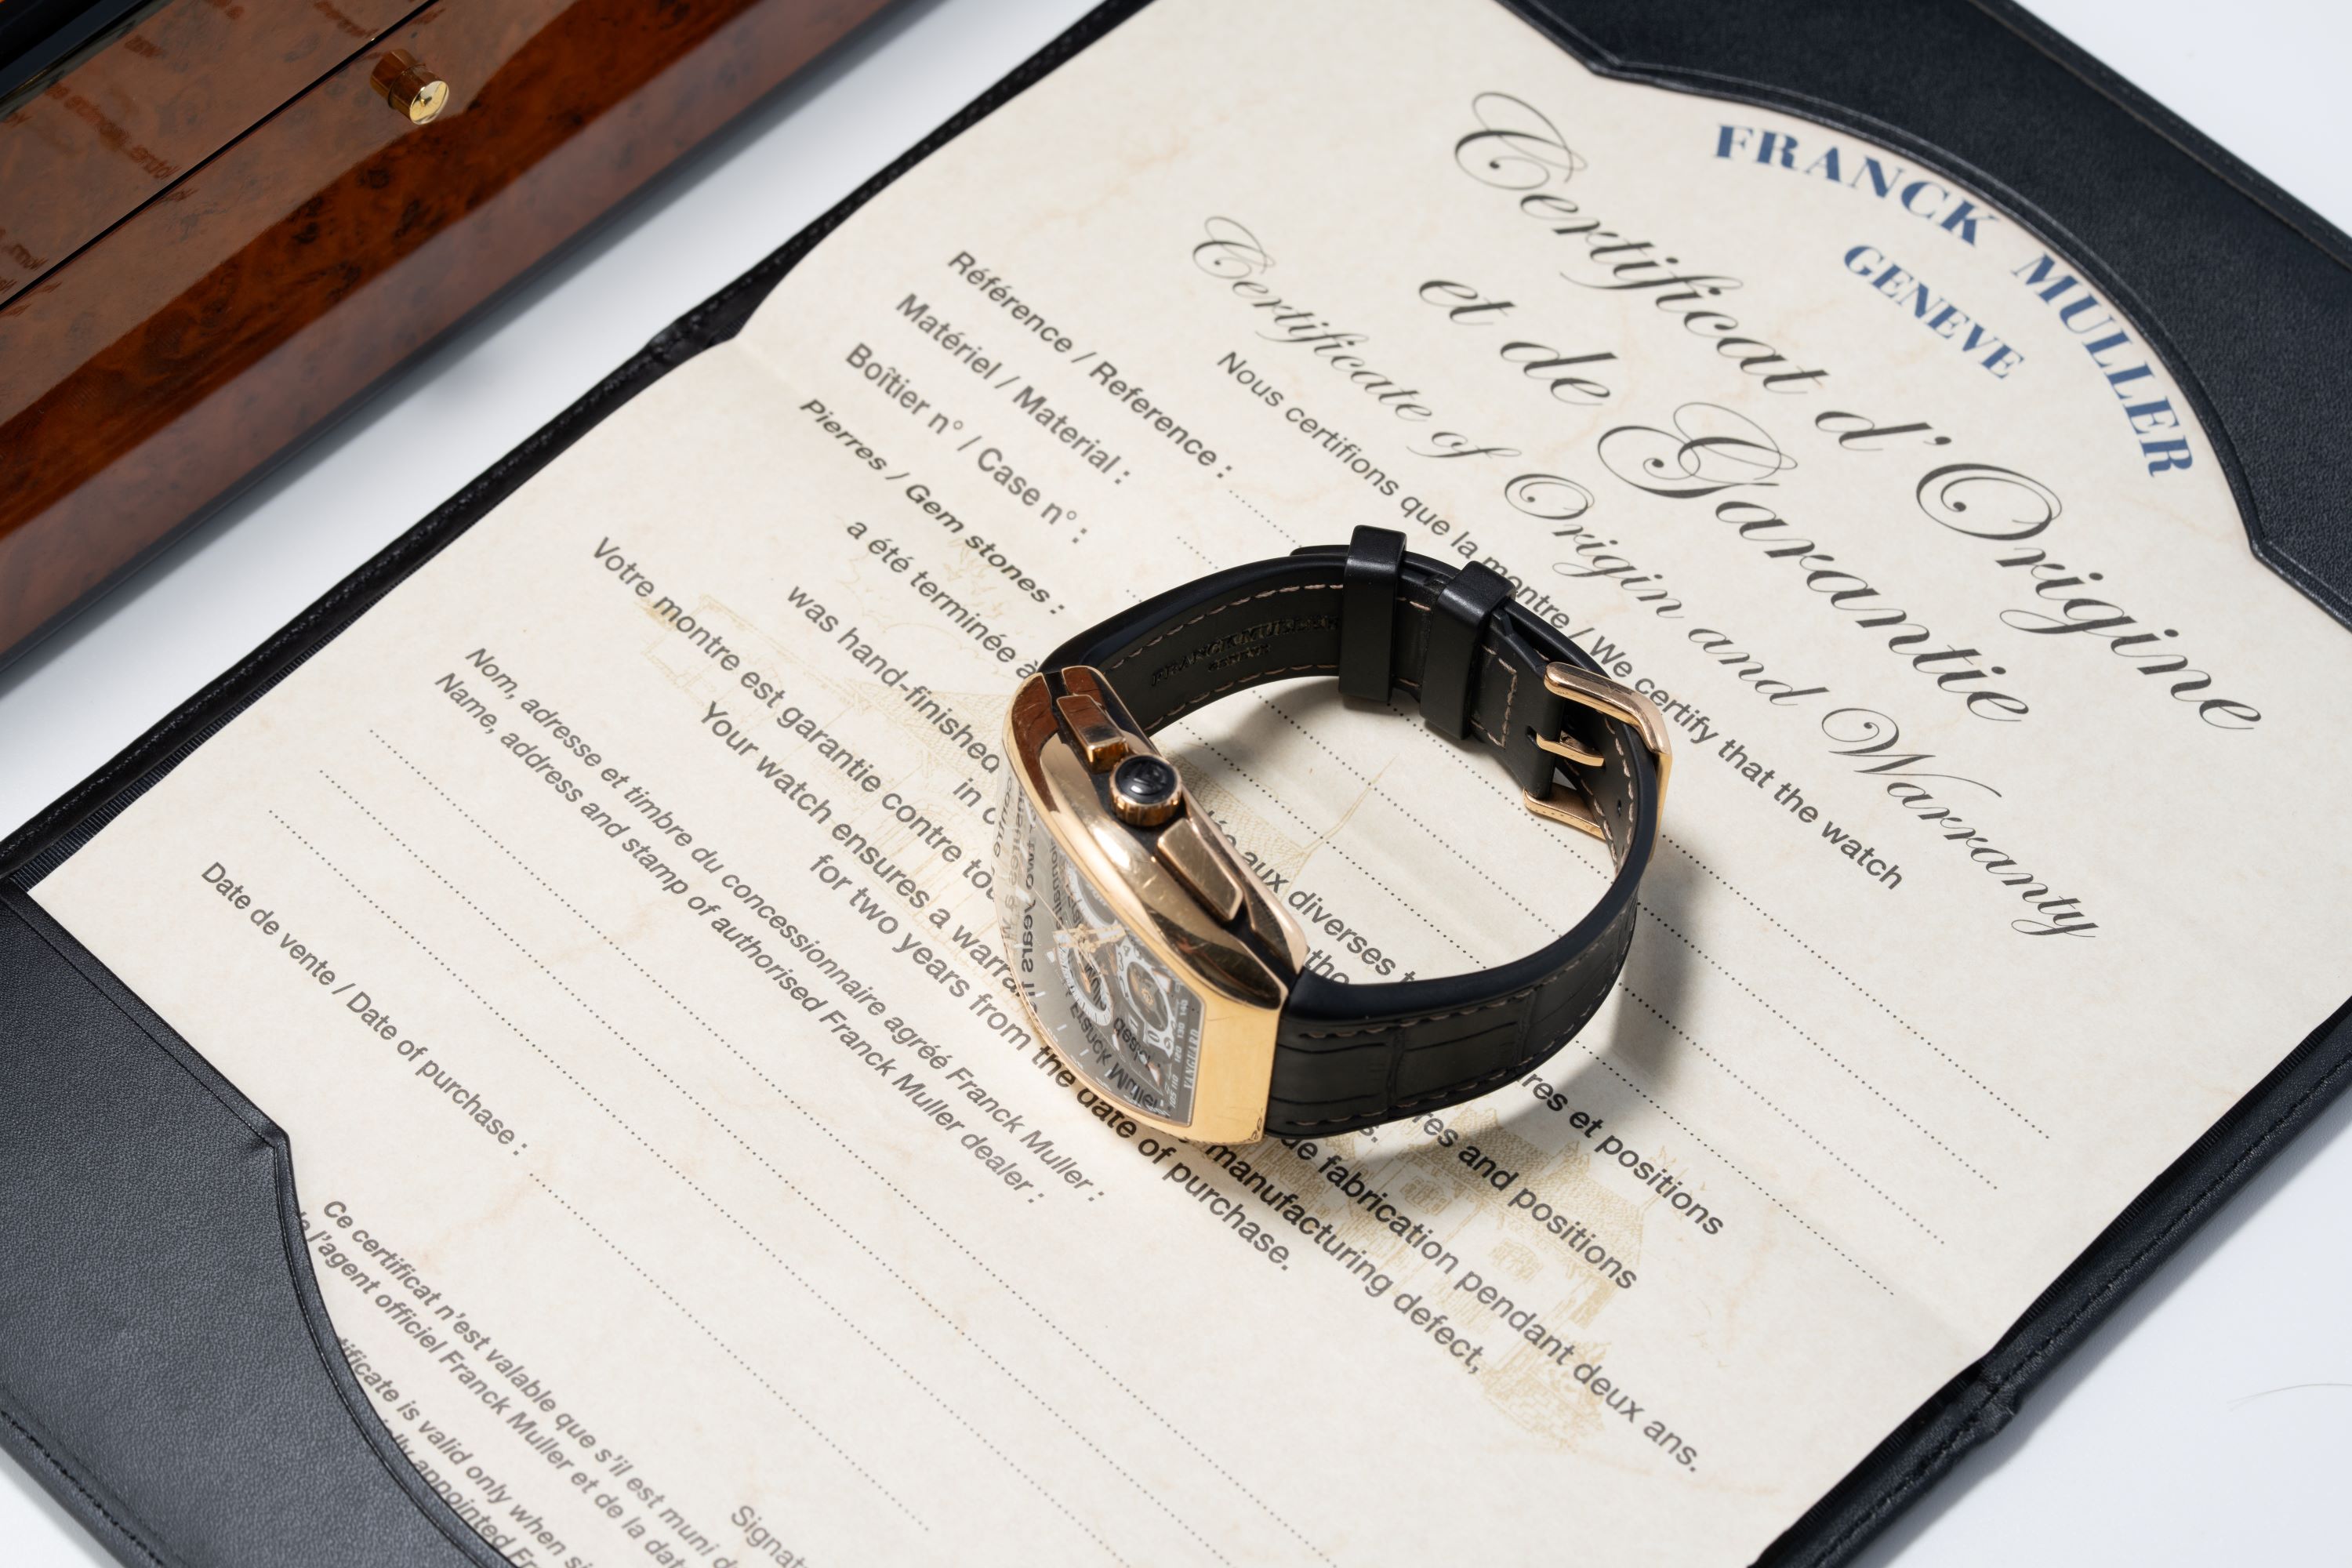 FRANCK MULLER
GENEVE
Certificat d'Origine
et de Garantie
Certificate of Origin and Warranty
Nous certifions que la montre / We certify that the watch
Référence / Reference :
Matériel / Material :
Boîtier n° / Case n° :
Pierres / Gem stones :
a été terminée à aux diverses res et positions
was hand-finished the res and positions
in
Votre montre est garantie contre de fabrication pendant deux ans.
Your watch ensures a manufacturing defect,
for two years from the date of purchase.
Nom, adresse et timbre du concessionnaire agréé Franck Muller :
Name, address and stamp of authorised Franck Muller dealer :
Date de vente / Date of purchase :
Ce certificat n'est valable que s'il est muni
l'agent officiel Franck Muller et de la
is valid only when
appointed
FRANCK MULLER
GENEVE
VANGUARD